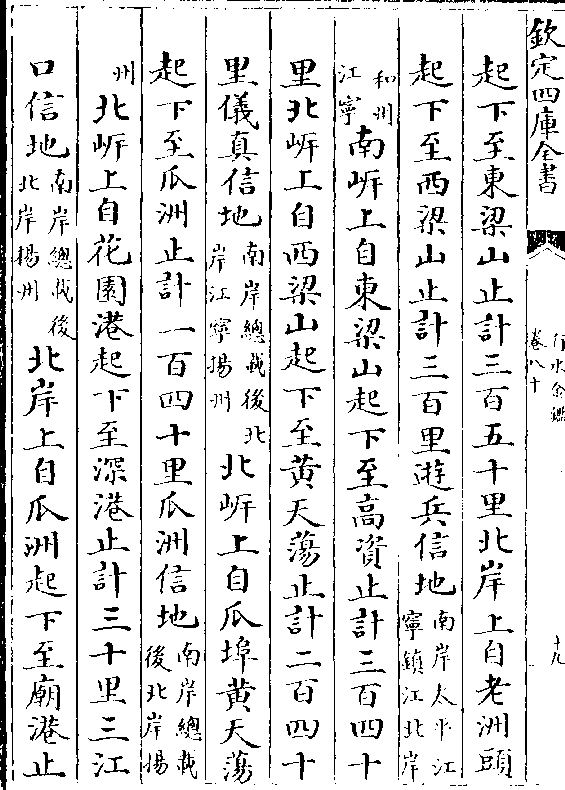 欽定四庫全書
行水金鑑
卷八十
十九
起下至東梁山止計三百五十里北岸上自老洲頭
起下至西梁山止計三百里遊兵信地南岸太平江寧鎮江北岸
和州江寧南㟁上自東梁山起下至高資止計三百四十
里北㟁上自西梁山起下至黃天蕩止計二百四十
里儀真信地南岸總載後北岸江寧揚州北㟁上自瓜埠黃天蕩
起下至瓜洲止計一百四十里瓜洲信地南岸總載後北岸揚
州北㟁上自花園港起下至深港止計三十里三江
口信地南岸總載後北岸揚州北岸上自瓜洲起下至廟港止